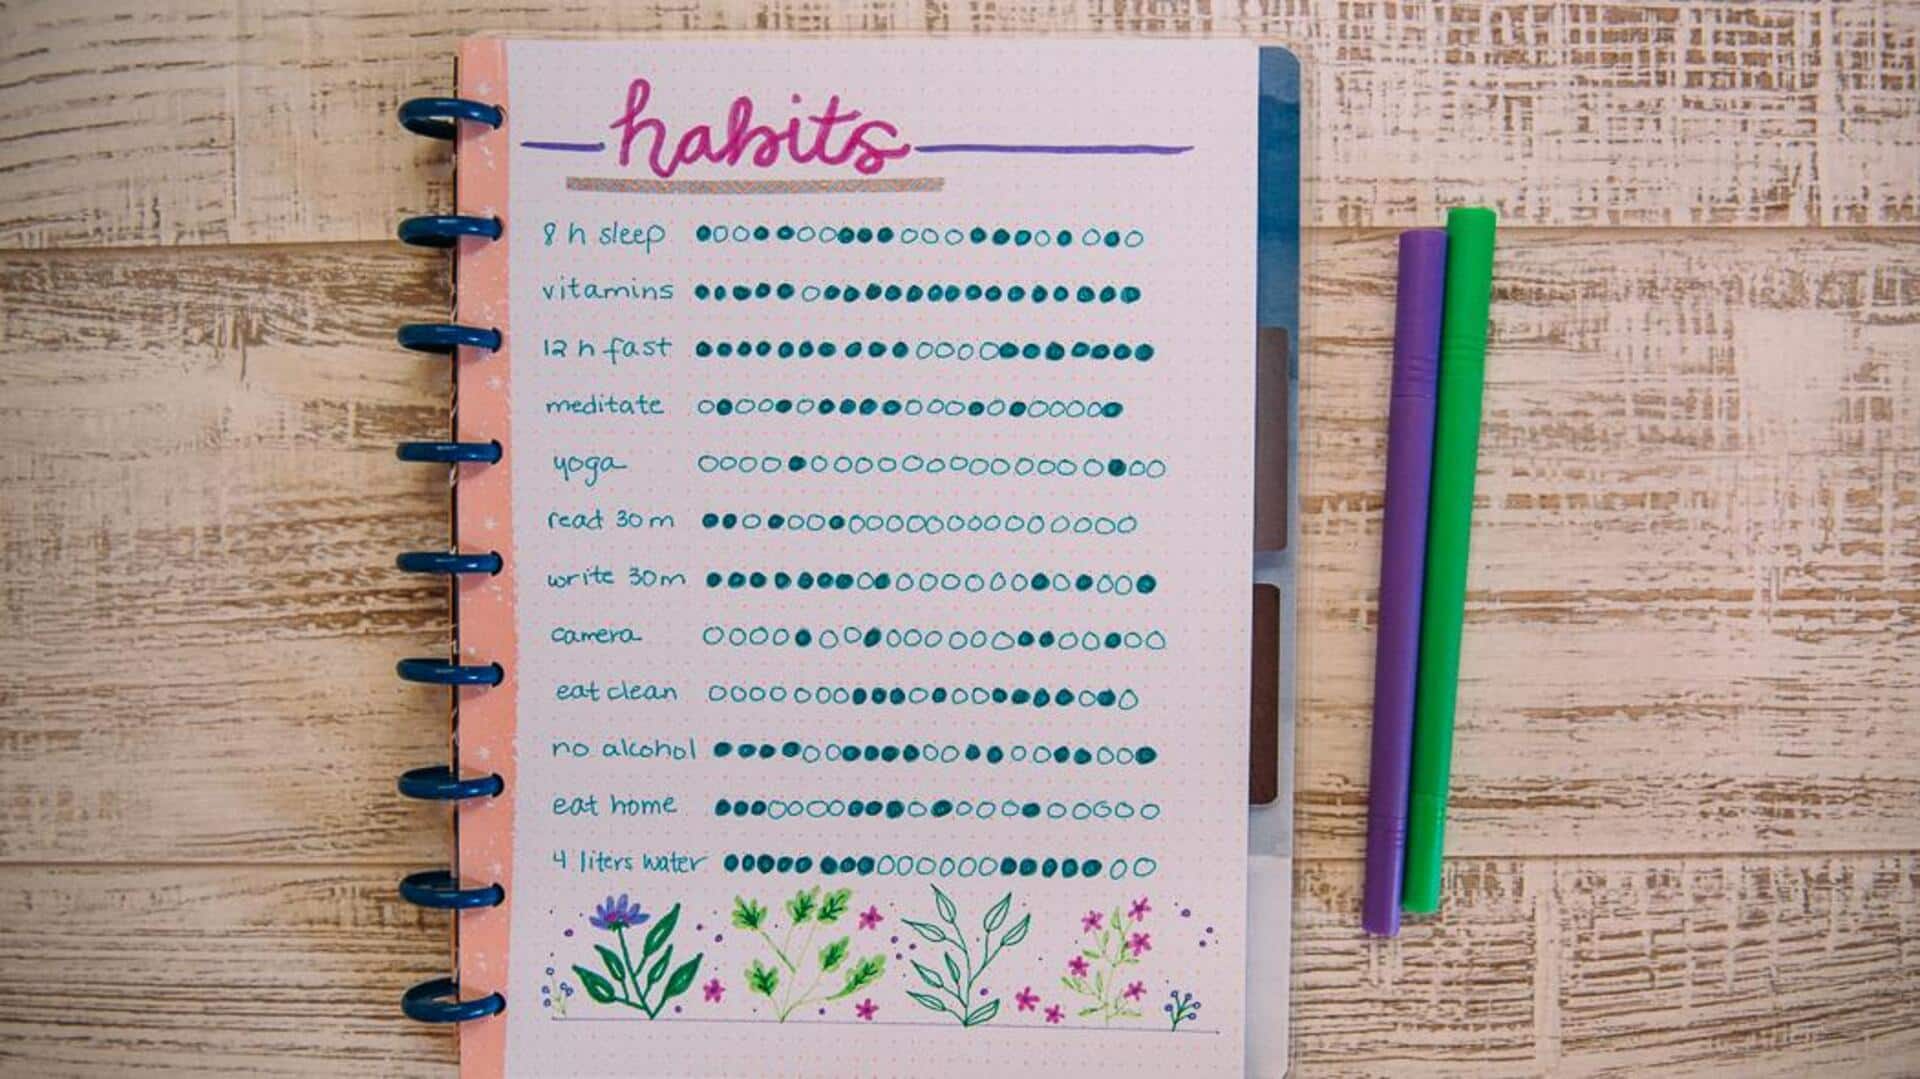 habits
8 h sleep
vitamins
12 h fast
meditate
yoga
read 30m
write 30m
camera
eat clean
no alcohol
eat home
4 liters water